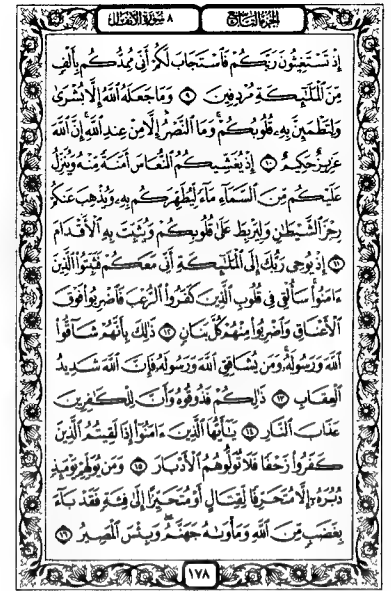 الجزء التاسع
٨ سورة الأنفال
إِذْ تَسْتَغِيثُونَ رَبَّكُمْ فَاسْتَجَابَ لَكُمْ أَنِّي مُمِدُّكُم بِأَلْفٍ
مِّنَ الْمَلَائِكَةِ مُرْدِفِينَ ۝٩ وَمَا جَعَلَهُ اللَّهُ إِلَّا بُشْرَىٰ
وَلِتَطْمَئِنَّ بِهِ قُلُوبُكُمْ ۚ وَمَا النَّصْرُ إِلَّا مِنْ عِندِ اللَّهِ ۚ إِنَّ اللَّهَ
عَزِيزٌ حَكِيمٌ ۝١٠ إِذْ يُغَشِّيكُمُ النُّعَاسَ أَمَنَةً مِّنْهُ وَيُنَزِّلُ
عَلَيْكُم مِّنَ السَّمَاءِ مَاءً لِّيُطَهِّرَكُم بِهِ وَيُذْهِبَ عَنكُمْ
رِجْزَ الشَّيْطَانِ وَلِيَرْبِطَ عَلَىٰ قُلُوبِكُمْ وَيُثَبِّتَ بِهِ الْأَقْدَامَ
۝١١ إِذْ يُوحِي رَبُّكَ إِلَى الْمَلَائِكَةِ أَنِّي مَعَكُمْ فَثَبِّتُوا الَّذِينَ
ءَامَنُوا ۚ سَأُلْقِي فِي قُلُوبِ الَّذِينَ كَفَرُوا الرُّعْبَ فَاضْرِبُوا فَوْقَ
الْأَعْنَاقِ وَاضْرِبُوا مِنْهُمْ كُلَّ بَنَانٍ ۝١٢ ذَٰلِكَ بِأَنَّهُمْ شَاقُّوا
اللَّهَ وَرَسُولَهُ ۚ وَمَن يُشَاقِقِ اللَّهَ وَرَسُولَهُ فَإِنَّ اللَّهَ شَدِيدُ
الْعِقَابِ ۝١٣ ذَٰلِكُمْ فَذُوقُوهُ وَأَنَّ لِلْكَافِرِينَ
عَذَابَ النَّارِ ۝١٤ يَا أَيُّهَا الَّذِينَ ءَامَنُوا إِذَا لَقِيتُمُ الَّذِينَ
كَفَرُوا زَحْفًا فَلَا تُوَلُّوهُمُ الْأَدْبَارَ ۝١٥ وَمَن يُوَلِّهِمْ يَوْمَئِذٍ
دُبُرَهُ إِلَّا مُتَحَرِّفًا لِّقِتَالٍ أَوْ مُتَحَيِّزًا إِلَىٰ فِئَةٍ فَقَدْ بَاءَ
بِغَضَبٍ مِّنَ اللَّهِ وَمَأْوَاهُ جَهَنَّمُ ۖ وَبِئْسَ الْمَصِيرُ ۝١٦
١٧٨